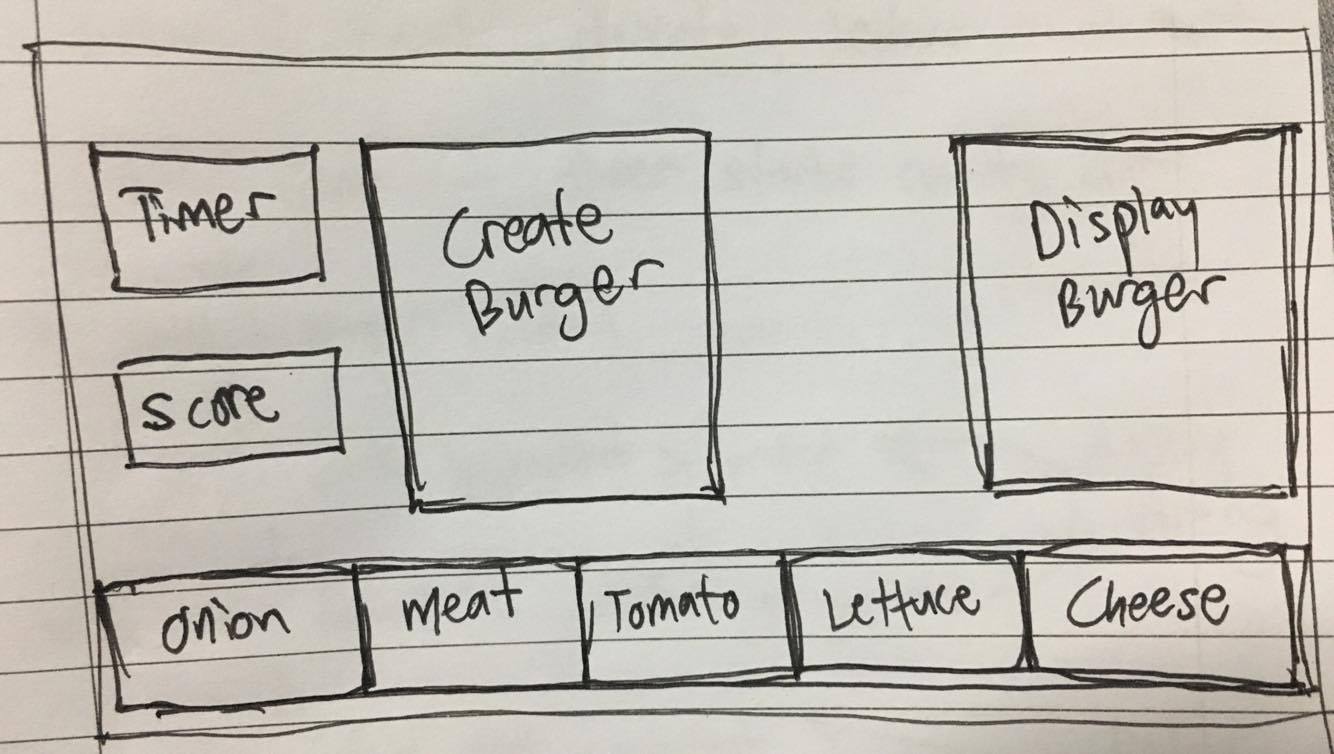 Timer
Create
Burger
Display
Burger
Score
Onion
Meat
Tomato
Lettuce
Cheese